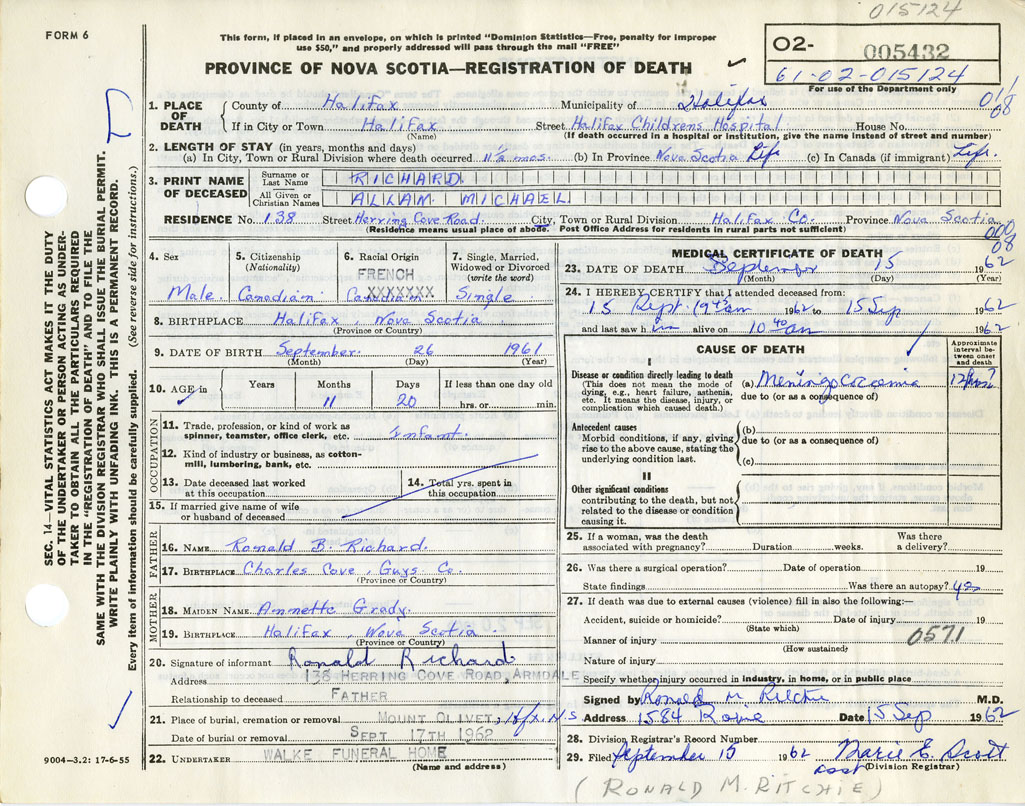 015124
FORM 6
This form, if placed in an envelope, on which is printed "Dominion Statistics—Free, penalty for improper
use $50," and properly addressed will pass through the mail "FREE"
PROVINCE OF NOVA SCOTIA—REGISTRATION OF DEATH
02- 005432
61-02-015124
For use of the Department only
1. PLACE OF DEATH
County of Halifax Municipality of Halifax
If in City or Town Halifax Street Halifax Childrens Hospital House No.
(Name) (If death occurred in a hospital or institution, give the name instead of street and number)
2. LENGTH OF STAY (in years, months and days)
(a) In City, Town or Rural Division where death occurred 11½ mos. (b) In Province Nova Scotia Life (c) In Canada (if immigrant) Life.
3. PRINT NAME OF DECEASED
Surname or Last Name RICHARD
All Given or Christian Names ALLAN MICHAEL
RESIDENCE No. 138 Street Herring Cove Road. City, Town or Rural Division Halifax Co. Province Nova Scotia
(Residence means usual place of abode. Post Office Address for residents in rural parts not sufficient)
000
08
4. Sex Male
5. Citizenship (Nationality) Canadian
6. Racial Origin FRENCH Canadian XXXXXXX
7. Single, Married, Widowed or Divorced (write the word) Single
8. BIRTHPLACE Halifax, Nova Scotia
(Province or Country)
9. DATE OF BIRTH September 26 1961
(Month) (Day) (Year)
10. AGE in Years Months Days If less than one day old
11 20 hrs. or min.
OCCUPATION
11. Trade, profession, or kind of work as spinner, teamster, office clerk, etc. Infant.
12. Kind of industry or business, as cotton-mill, lumbering, bank, etc.
13. Date deceased last worked at this occupation
14. Total yrs. spent in this occupation
15. If married give name of wife or husband of deceased
FATHER
16. NAME Ronald B. Richard.
17. BIRTHPLACE Charles Cove, Guys Co.
(Province or Country)
MOTHER
18. MAIDEN NAME Annette Grady.
19. BIRTHPLACE Halifax, Nova Scotia.
(Province or Country)
20. Signature of informant Ronald Richard
Address 138 HERRING COVE ROAD, ARMDALE
Relationship to deceased FATHER
21. Place of burial, cremation or removal MOUNT OLIVET, Hfx. N.S
Date of burial or removal SEPT 17TH 1962
22. UNDERTAKER WALKE FUNERAL HOME
(Name and address)
MEDICAL CERTIFICATE OF DEATH
23. DATE OF DEATH September 15 1962
(Month) (Day) (Year)
24. I HEREBY CERTIFY that I attended deceased from:
15 Sept. 1962 to 15 Sep 1962
and last saw him alive on 10 40 am 1962
CAUSE OF DEATH
Approximate interval between onset and death
I
Disease or condition directly leading to death
(This does not mean the mode of dying, e.g., heart failure, asthenia, etc. It means the disease, injury, or complication which caused death.)
(a) Meningococcemia 12 hrs?
due to (or as a consequence of)
Antecedent causes
Morbid conditions, if any, giving rise to the above cause, stating the underlying condition last.
(b)
due to (or as a consequence of)
(c)
II
Other significant conditions
contributing to the death, but not related to the disease or condition causing it.
25. If a woman, was the death associated with pregnancy? Duration weeks. Was there a delivery?
26. Was there a surgical operation? Date of operation 19
State findings Was there an autopsy? yes
27. If death was due to external causes (violence) fill in also the following:—
Accident, suicide or homicide? Date of injury 19
(State which)
Manner of injury 0571
(How sustained)
Nature of injury
Specify whether injury occurred in industry, in home, or in public place
Signed by Ronald M Ritchie M.D.
Address 1584 Date 15 Sep 1962
28. Division Registrar's Record Number
29. Filed September 15 1962 Marie E. Scott
Asst (Division Registrar)
(RONALD M. RITCHIE)
SEC. 14—VITAL STATISTICS ACT MAKES IT THE DUTY
OF THE UNDERTAKER OR PERSON ACTING AS UNDER-
TAKER TO OBTAIN ALL THE PARTICULARS REQUIRED
IN THE "REGISTRATION OF DEATH" AND TO FILE THE
SAME WITH THE DIVISION REGISTRAR WHO SHALL ISSUE THE BURIAL PERMIT.
WRITE PLAINLY WITH UNFADING INK. THIS IS A PERMANENT RECORD.
Every item of information should be carefully supplied. (See reverse side for instructions.)
9004-3.2: 17-6-55